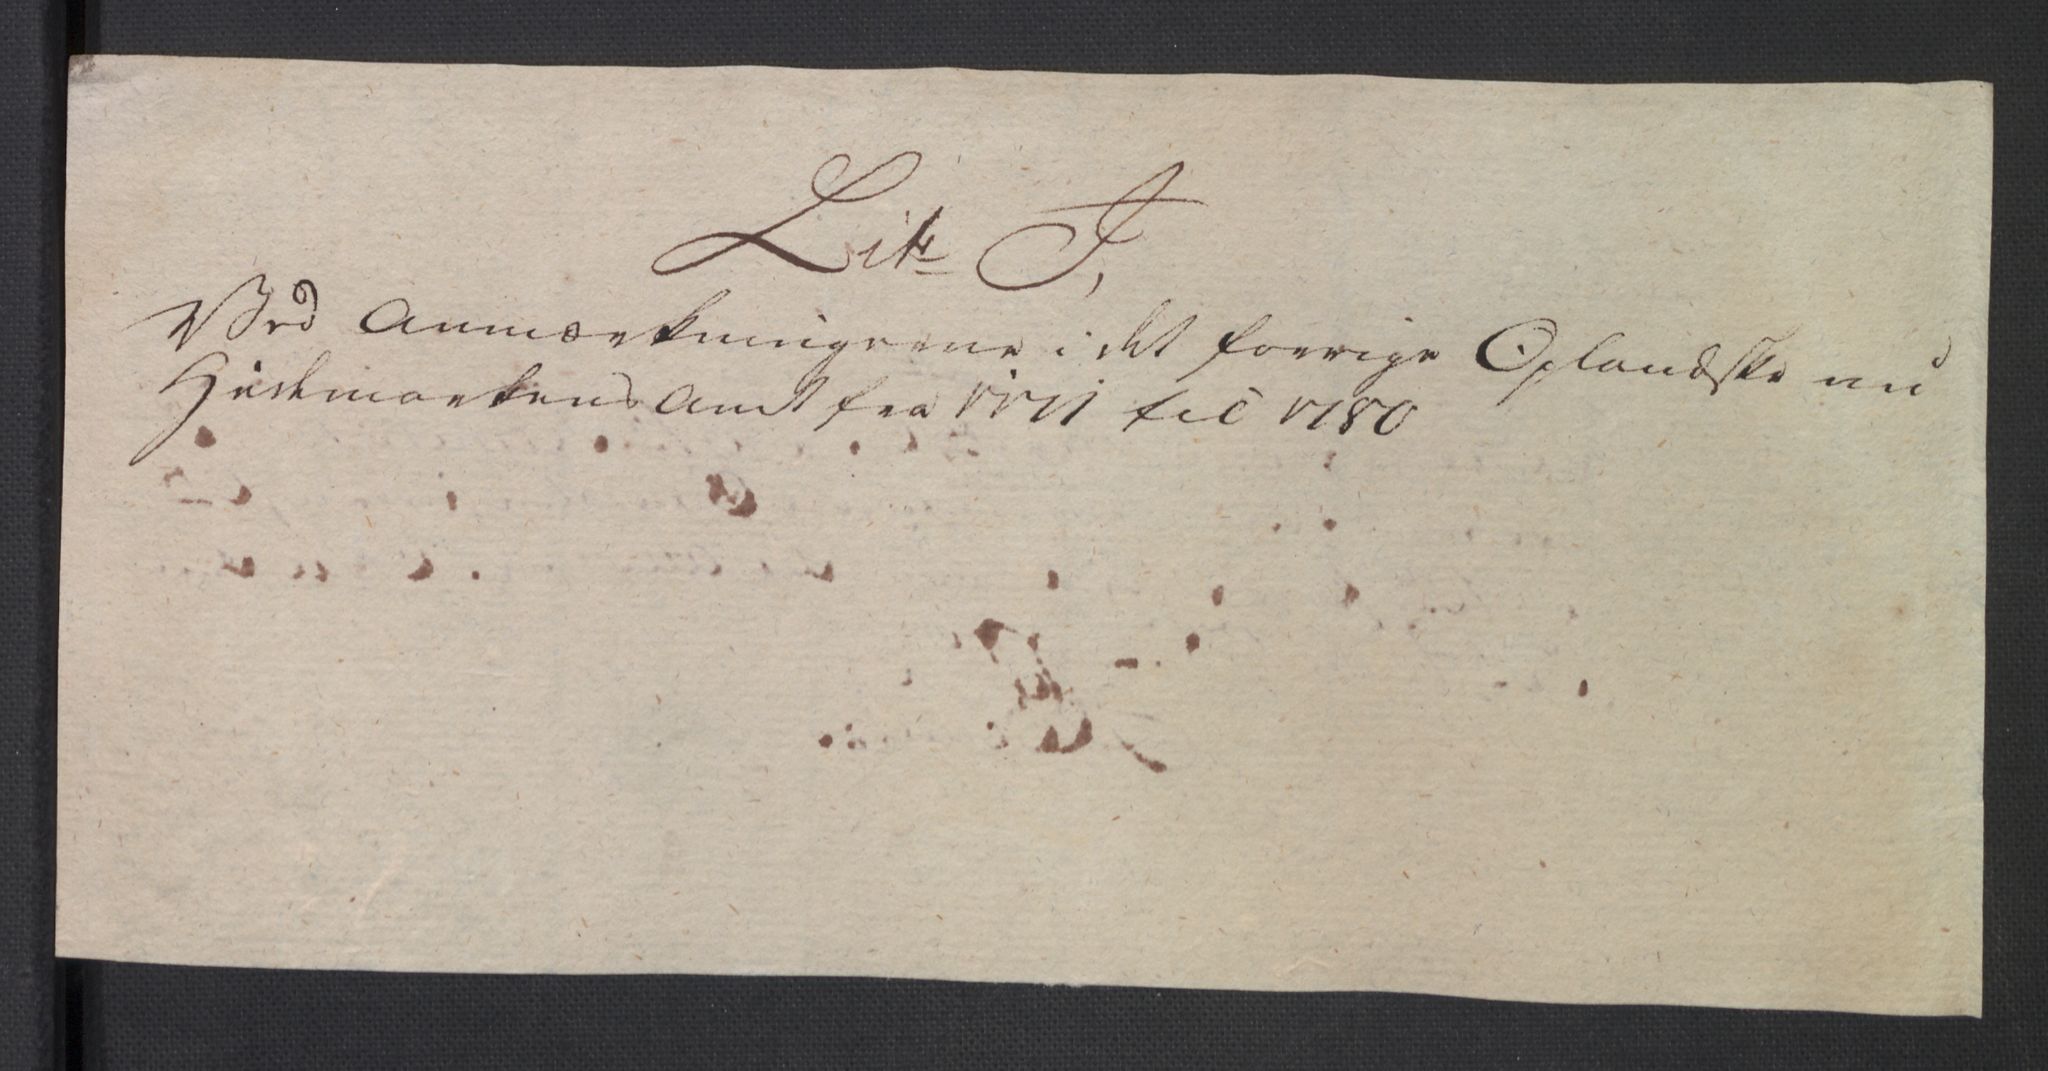 Litr J,
Ved Anmærkningerne i det forrige Oplandske nu
Hedemarkens Amt fra 1771 til 1780